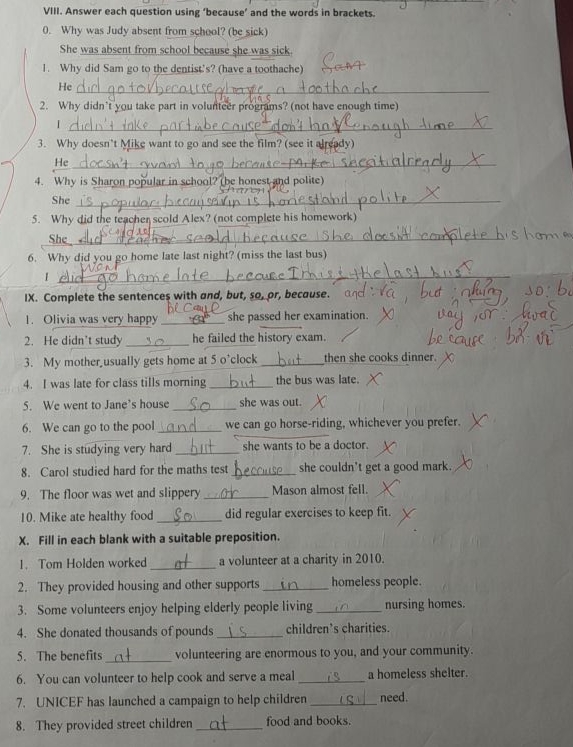 VIII. Answer each question using 'because' and the words in brackets.
0. Why was Judy absent from school? (be sick)
She was absent from school because she was sick.
1. Why did Sam go to the dentist's? (have a toothache) Sam
He did go to because have a toothache
he has
2. Why didn't you take part in volunteer programs? (not have enough time)
I didn't take part because I don't have enough time X
3. Why doesn't Mike want to go and see the film? (see it already)
He doesn't want to go because already X
4. Why is Sharon popular in school? (be honest and polite)
Sharon
She is popular because is honest and polite X
5. Why did the teacher scold Alex? (not complete his homework)
scolded
She did teacher scold because she doesn't complete his home
6. Why did you go home late last night? (miss the last bus)
went
I did go home late because I miss the last bus.
IX. Complete the sentences with and, but, so, or, because. and : và, but : nhưng, so : 
because vậy, or : hoặc
1. Olivia was very happy she passed her examination. X
because : bởi vì
2. He didn't study so he failed the history exam.
3. My mother usually gets home at 5 o'clock but then she cooks dinner. X
4. I was late for class tills morning but the bus was late. X
5. We went to Jane's house so she was out. X
6. We can go to the pool and we can go horse-riding, whichever you prefer. X
7. She is studying very hard but she wants to be a doctor. X
8. Carol studied hard for the maths test because she couldn't get a good mark. X
9. The floor was wet and slippery or Mason almost fell. X
10. Mike ate healthy food so did regular exercises to keep fit. X
X. Fill in each blank with a suitable preposition.
1. Tom Holden worked at a volunteer at a charity in 2010.
2. They provided housing and other supports in homeless people.
3. Some volunteers enjoy helping elderly people living in nursing homes.
4. She donated thousands of pounds is children's charities.
5. The benefits at volunteering are enormous to you, and your community.
6. You can volunteer to help cook and serve a meal is a homeless shelter.
7. UNICEF has launched a campaign to help children is need.
8. They provided street children at food and books.